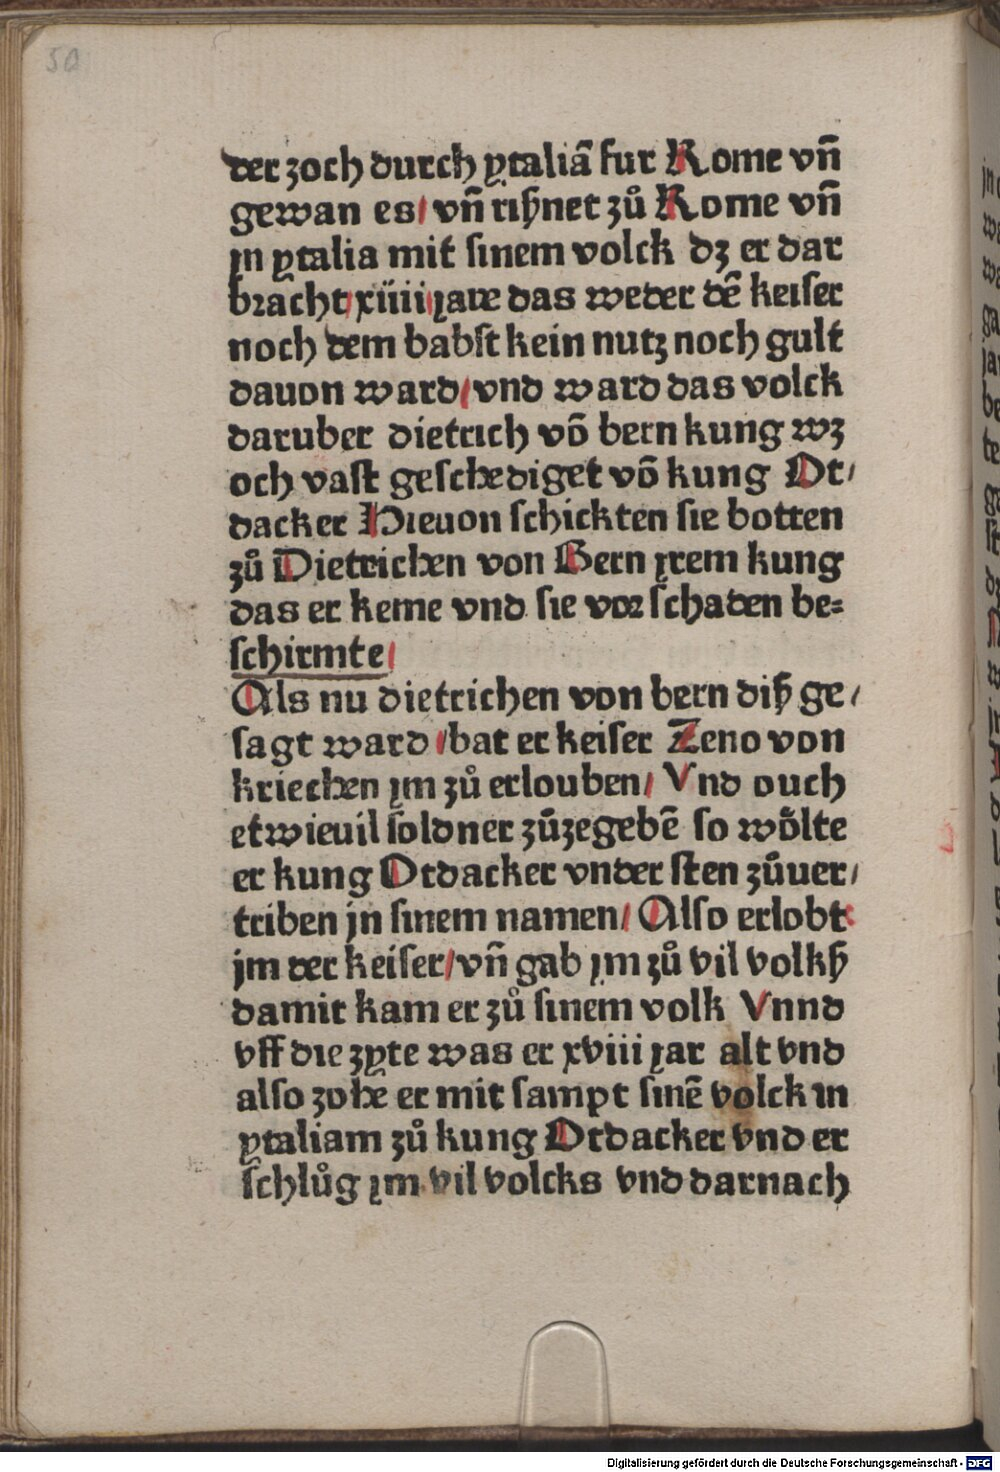 50
der zoch durch ytaliā fur Rome vn̄
gewan es/ vn̄ rihnet zů Rome vn̄
jn ytalia mit sinem volck dz er dar
bracht/ xiiii jare das weder dē keiser
noch dem babst kein nutz noch gult
dauon ward/ vnd ward das volck
daruber dietrich vō bern kung wz
och vast geschediget vō kung Ot/
dacker Hieuon schickten sie botten
zů Dietrichen von Bern jrem kung
das er keme vnd sie vor schaden be=
schirmte/
Als nu dietrichen von bern diß ge/
sagt ward/ bat er keiser Zeno von
kriechen jm zů erlouben/ Vnd ouch
etwieuil soldner zůzegebē so wőlte
er kung Otdacker vnder sten zůuer/
triben jn sinem namen/ Also erlobt
jm der keiser/ vn̄ gab jm zů vil volkß
damit kam er zů sinem volk Vnnd
vff die zyte was er xviii jar alt vnd
also zohe er mit sampt sinē volck in
ytaliam zů kung Otdacker vnd er
schlůg jm vil volcks vnd darnach
Digitalisierung gefördert durch die Deutsche Forschungsgemeinschaft - DFG